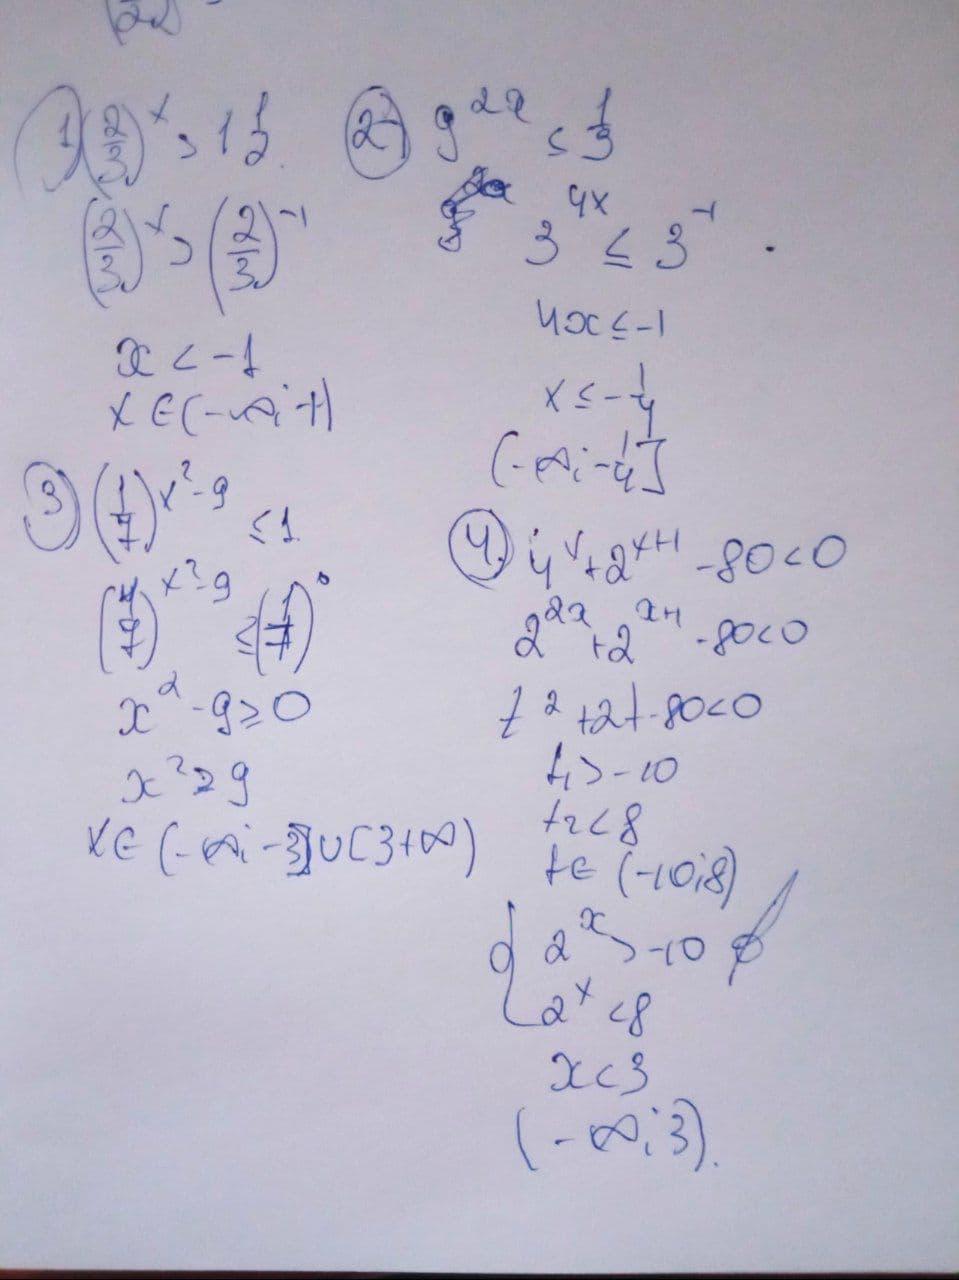 22
1) (2/3)^x > 1 1/2
(2/3)^x > (2/3)^-1
x < -1
x ∈ (-∞; -1)
2) 9^2x ≤ 1/3
3^4x ≤ 3^-1
4x ≤ -1
x ≤ -1/4
(-∞; -1/4]
3) (1/7)^x²-9 ≤ 1
(1/7)^x²-9 ≤ (1/7)^0
x² - 9 ≥ 0
x² ≥ 9
x ∈ (-∞; -3] ∪ [3 +∞)
4. 4^x + 2^x+1 - 80 < 0
2^2x + 2^x+1 - 80 < 0
t² + 2t - 80 < 0
t₁ > -10
t₂ < 8
t ∈ (-10; 8)
{ 2^x > -10 ∅
2^x < 8
x < 3
(-∞; 3).